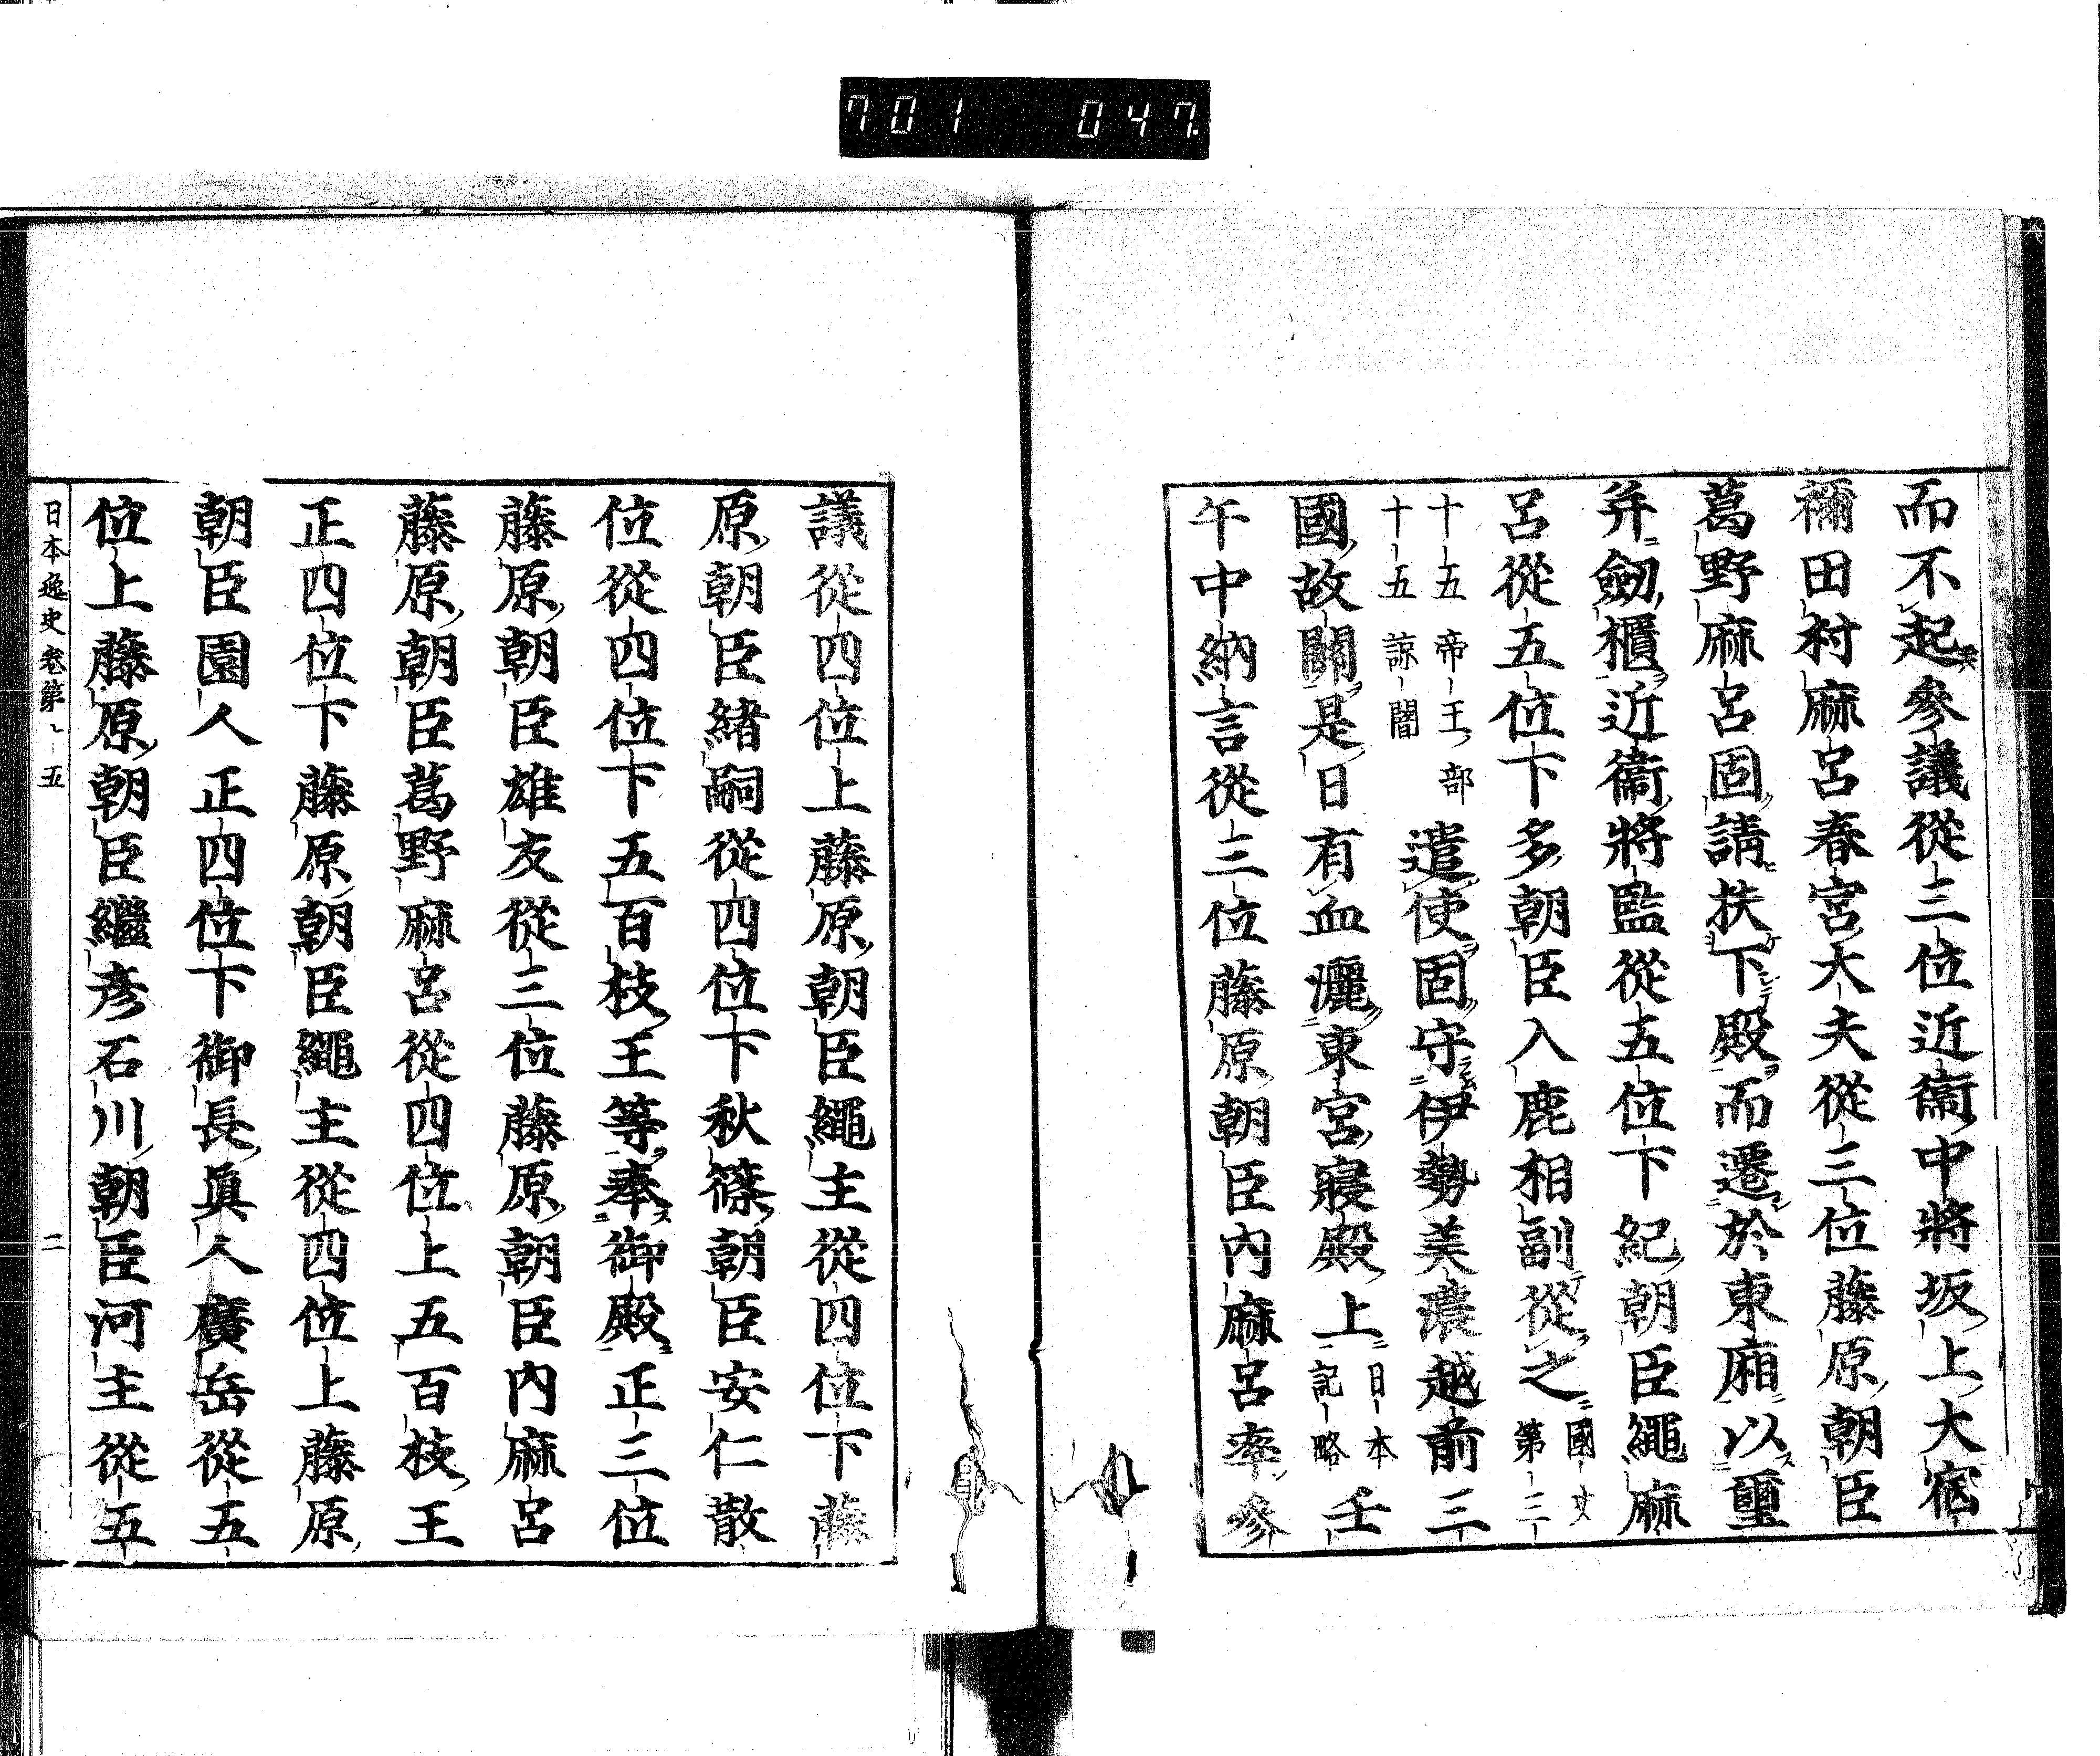 701 047
而不起參議從三位近衞中將坂上大宿
禰田村麻呂春宮大夫從三位藤原朝臣
葛野麻呂固請扶下殿而遷於東廂以璽
并劒櫃近衞將監從五位下紀朝臣繩麻
呂從五位下多朝臣入鹿相副從之
國史
第三
十五帝王部
十五諒闇
遣使固守伊勢美濃越前三
國故關是日有血灑東宮寢殿上
日本
記略
壬
午中納言從三位藤原朝臣内麻呂率參
議從四位上藤原朝臣繩主從四位下藤
原朝臣緒嗣從四位下秋篠朝臣安仁散
位從四位下五百枝王等奉御殿正三位
藤原朝臣雄友從三位藤原朝臣内麻呂
藤原朝臣葛野麻呂從四位上五百枝王
正四位下藤原朝臣繩主從四位上藤原
朝臣園人正四位下御長眞人廣岳從五
位上藤原朝臣繼彦石川朝臣河主從五
日本逸史卷第 五
二